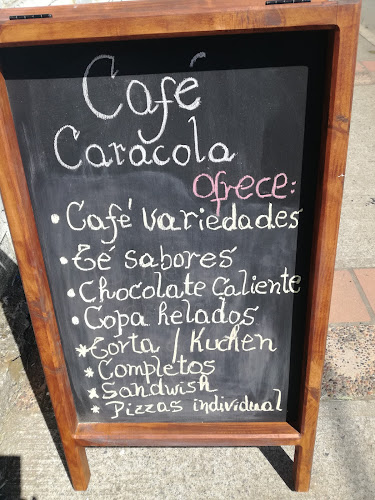 Café
Caracola
ofrece:
• Café variedades
• Té sabores
• Chocolate Caliente
• Copa helados
* Torta / Kuchen
* Completos
* Sandwish
* Pizzas individual